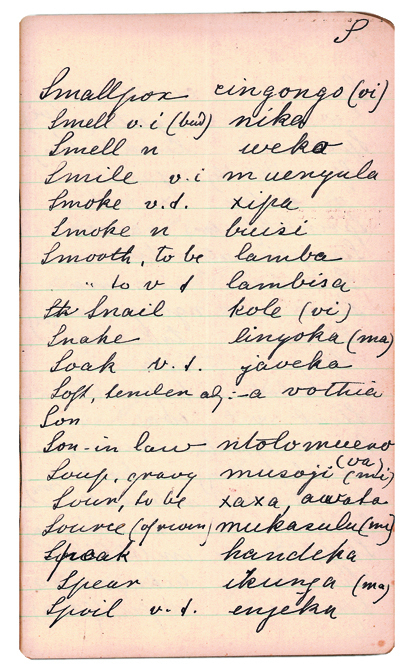 S
Smallpox cingongo (vi)
Smell v.i (bad) nika
Smell n weka
Smile v.i muenyula
Smoke v.t. xipa
Smoke n buisi
Smooth, to be lamba
" to v t lambisa
Snail kole (vi)
Snake linyoka (ma)
Soak v.t. javeka
Soft, tender adj: -a vothia
Son
Son-in law ntolomueno
(va)
Soup, gravy musoji (mi)
Sour, to be xaxa, awata
Source (of river) mukasulu (mi)
Speak handeka
Spear ikunga (ma)
Spoil v.t. enjeka